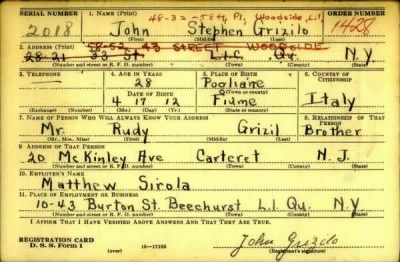 48-32-58th Pl, Woodside, L.I.
SERIAL NUMBER 1. NAME (Print) ORDER NUMBER
2018 John Stephen Grizilo 1428
(First) (Middle) (Last)
58-52 43 STREET WOODSIDE
2. ADDRESS (Print)
28-21 33 St. L.I.C. Qu. N.Y.
(Number and street or R. F. D. number) (Town) (County) (State)
3. TELEPHONE 4. AGE IN YEARS 5. PLACE OF BIRTH 6. COUNTRY OF CITIZENSHIP
28 Pogliane
DATE OF BIRTH (Town or county)
4 17 12 Fiume Italy
(Exchange) (Number) (Mo.) (Day) (Yr.) (State or country)
7. NAME OF PERSON WHO WILL ALWAYS KNOW YOUR ADDRESS 8. RELATIONSHIP OF THAT PERSON
Mr. Rudy Grizil Brother
(Mr., Mrs., Miss) (First) (Middle) (Last)
9. ADDRESS OF THAT PERSON
20 McKinley Ave Carteret N.J.
(Number and street or R. F. D. number) (Town) (County) (State)
10. EMPLOYER'S NAME
Matthew Sirola
11. PLACE OF EMPLOYMENT OR BUSINESS
10-43 Burton St. Beechurst L.I. Qu. N.Y
(Number and street or R. F. D. number) (Town) (County) (State)
I AFFIRM THAT I HAVE VERIFIED ABOVE ANSWERS AND THAT THEY ARE TRUE.
REGISTRATION CARD
D. S. S. FORM 1 (over) 16-17105 John Grizilo
(Registrant's signature)